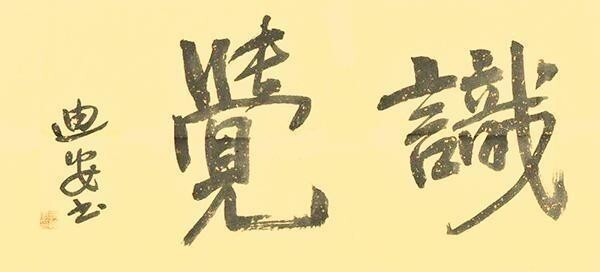 識覺
迪安书